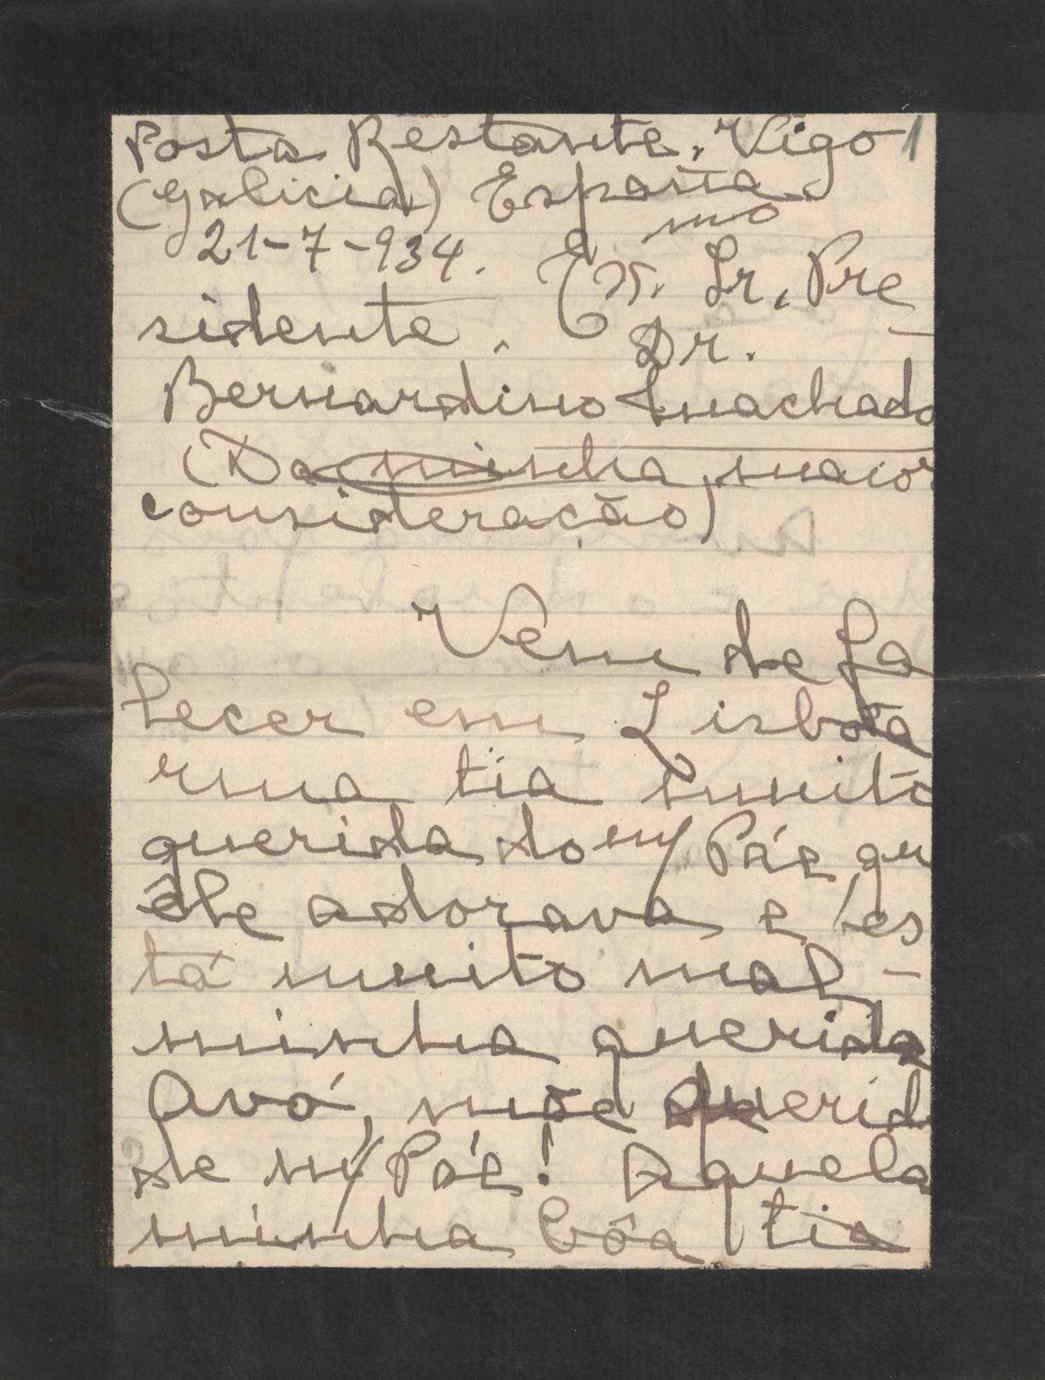 Posta Restante. Vigo 1
(Galicia) España
21-7-934. Ex.mo Sr. Pre
sidente. Dr.
Bernardino Machado
(Da minha maior
consideração)
Vem de fa
lecer em Lisbôa
uma tia muito
querida do m/ Páe, qu
êle adorava e es
tá muito mal -
minha querida
Avó, mãe querid
de m/ Páe! Aquela
minha bôa tia